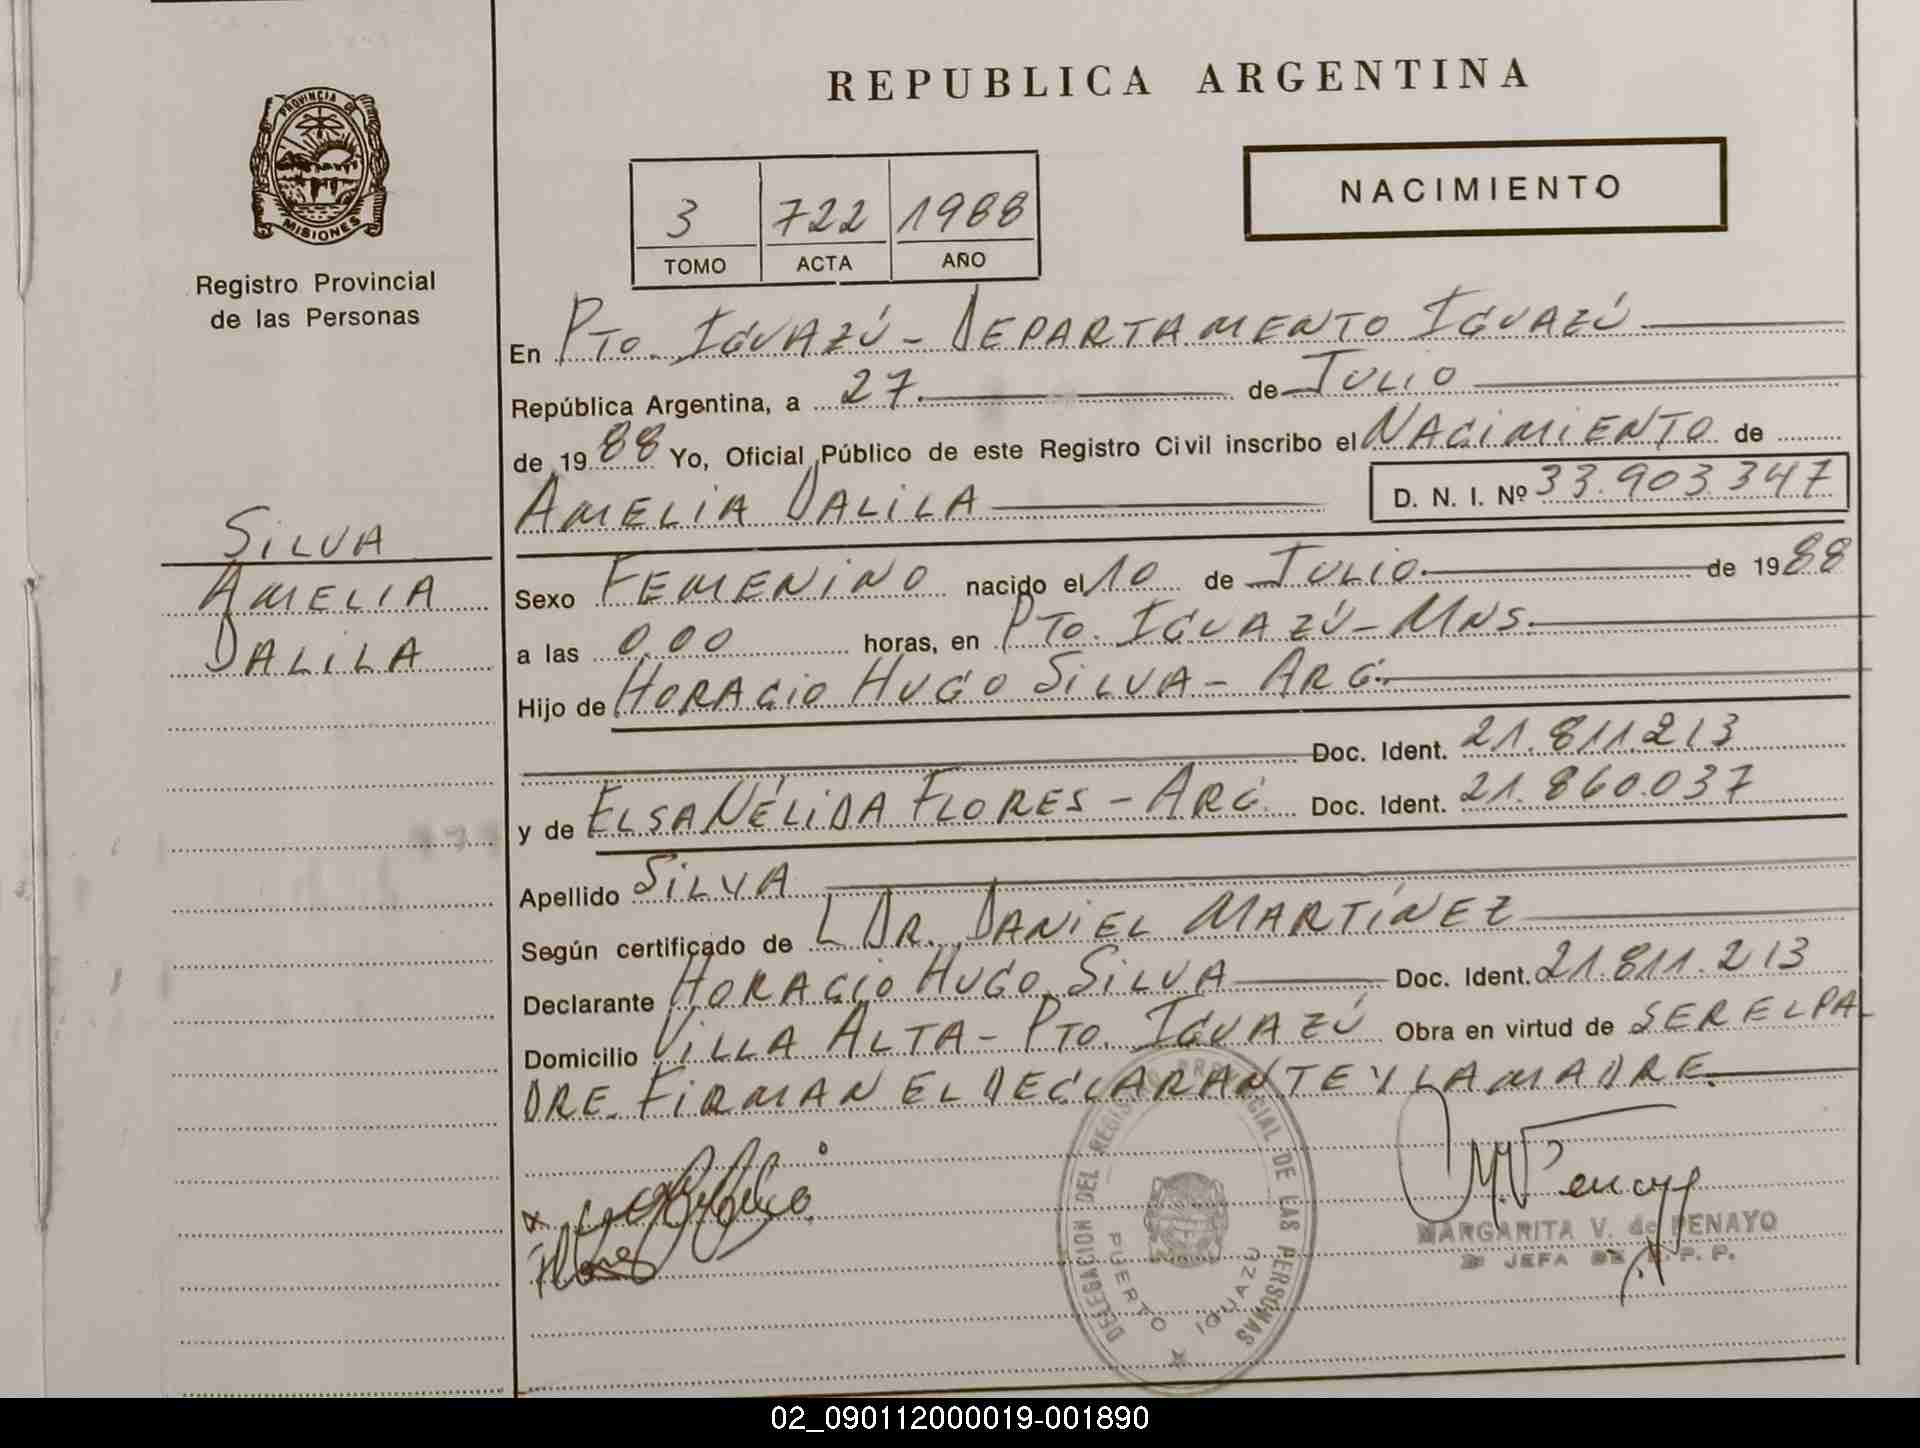 REPUBLICA ARGENTINA
PROVINCIA DE
MISIONES
Registro Provincial
de las Personas
NACIMIENTO
3 722 1988
TOMO ACTA AÑO
En PTO. IGUAZÚ - DEPARTAMENTO IGUAZÚ
República Argentina, a 27 de JULIO
de 1988 Yo, Oficial Público de este Registro Civil inscribo el NACIMIENTO de
AMELIA DALILA D. N. I. Nº 33.903.347
SILVA
AMELIA
DALILA
Sexo FEMENINO nacido el 10 de JULIO de 1988
a las 0,00 horas, en PTO. IGUAZÚ - MNS.
Hijo de HORACIO HUGO SILVA - ARG.
Doc. Ident. 21.811.213
y de ELSA NÉLIDA FLORES - ARG. Doc. Ident. 21.860.037
Apellido SILVA
Según certificado de L DR. DANIEL MARTÍNEZ
Declarante HORACIO HUGO SILVA Doc. Ident. 21.811.213
Domicilio VILLA ALTA - PTO. IGUAZÚ Obra en virtud de SER EL PA-
DRE. FIRMAN EL DECLARANTE Y LA MADRE.
DELEGACION DEL REGISTRO PROVINCIAL DE LAS PERSONAS
PUERTO IGUAZU
M. V. Penayo
MARGARITA V. de PENAYO
JEFA DE R. P. P.
02_090112000019-001890